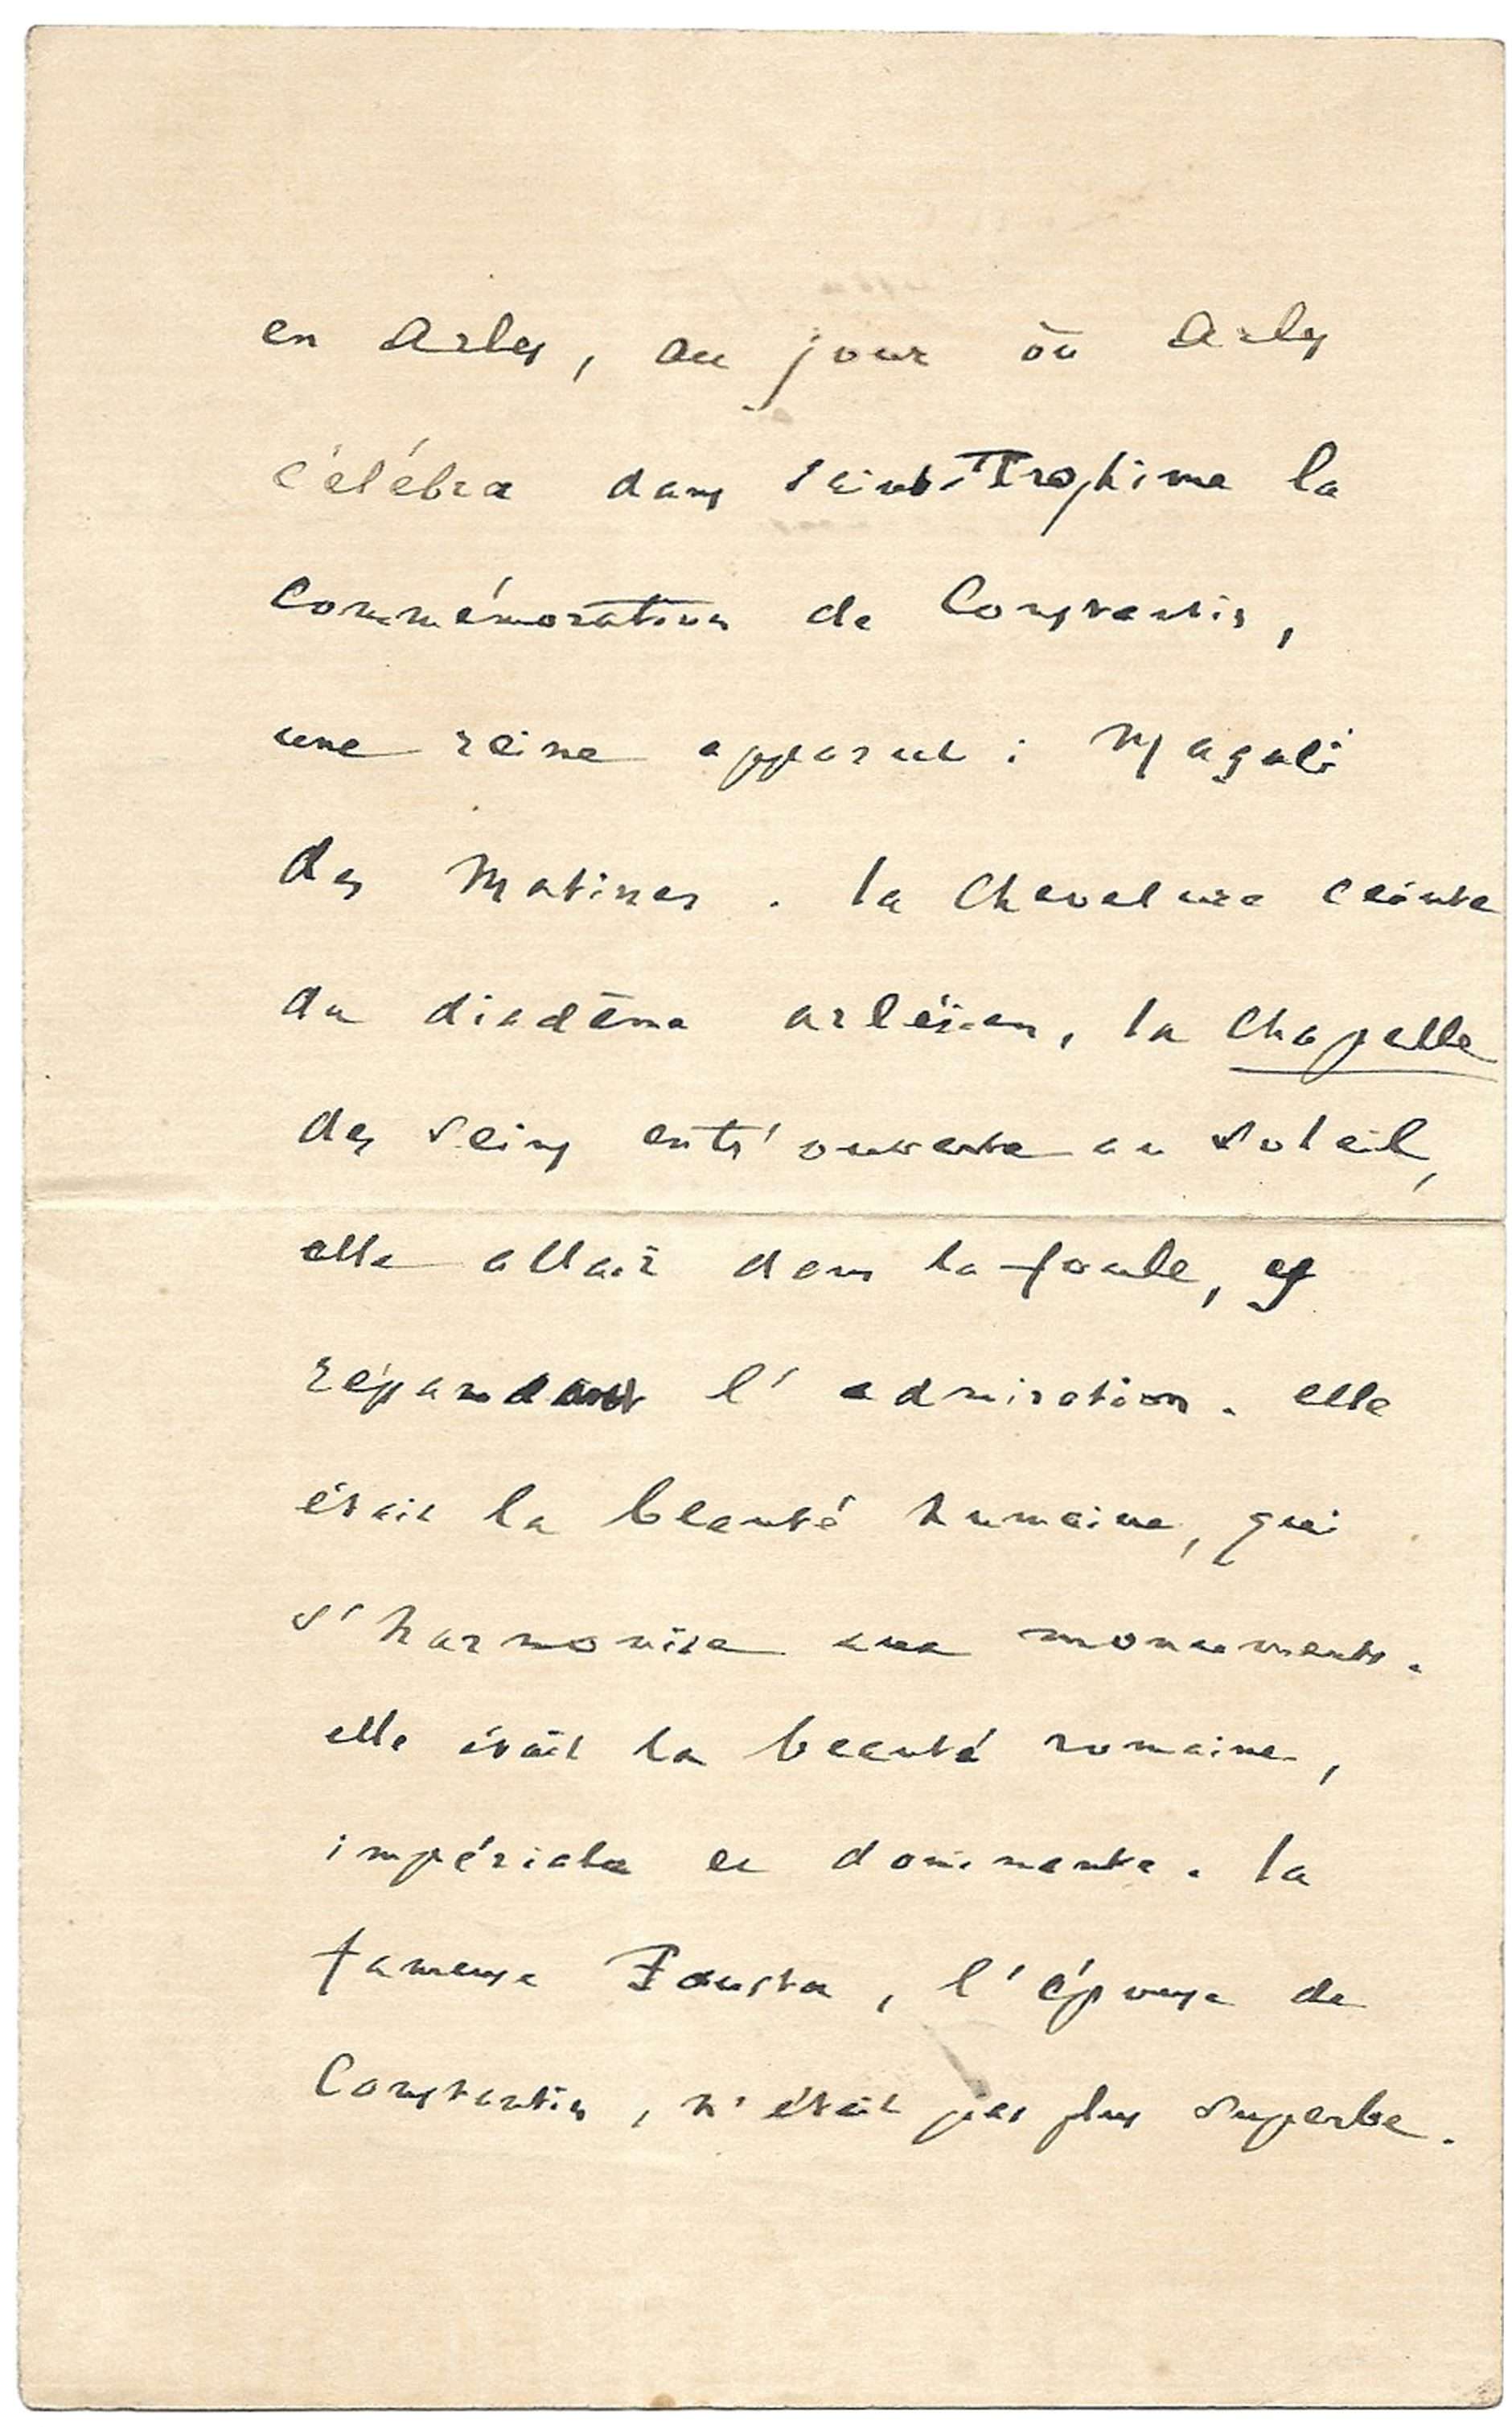 en Arles, au jour où Arles
célébra dans Saint-Trophime la
Commémoration de Constantin,
une reine apparut : Magali
des Matines. la Chevelure ceinte
du diadème arlésien, la Chapelle
des seins entr'ouverte au soleil,
elle allait dans la foule,
répandant l'admiration. elle
était la beauté humaine, qui
s'harmonise aux monuments.
elle était la beauté romaine,
impériale et dominante. la
fameuse Fausta, l'épouse de
Constantin, n'était pas plus superbe.